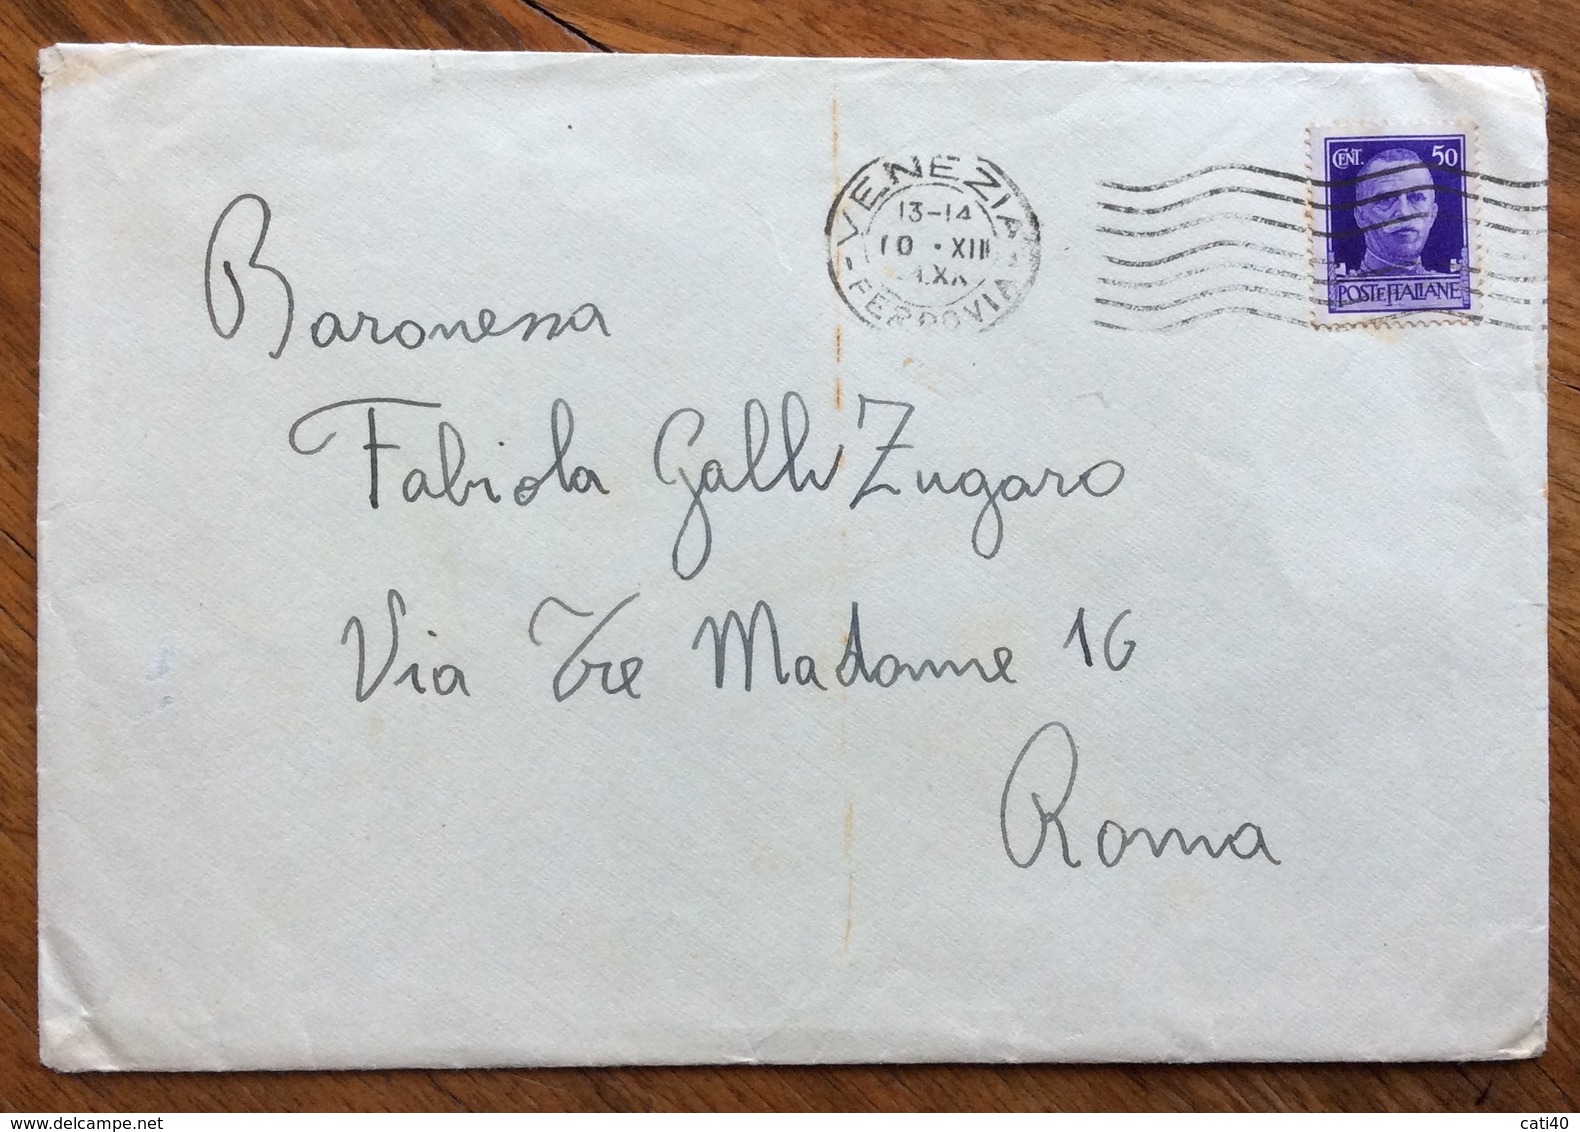 VENEZIA
13-14
10 · XII
FERROVIA
CENT. 50
POSTE ITALIANE
Baronessa
Fabiola Galli Zugaro
Via Tre Madame 16
Roma
www.delcampe.net
cati40